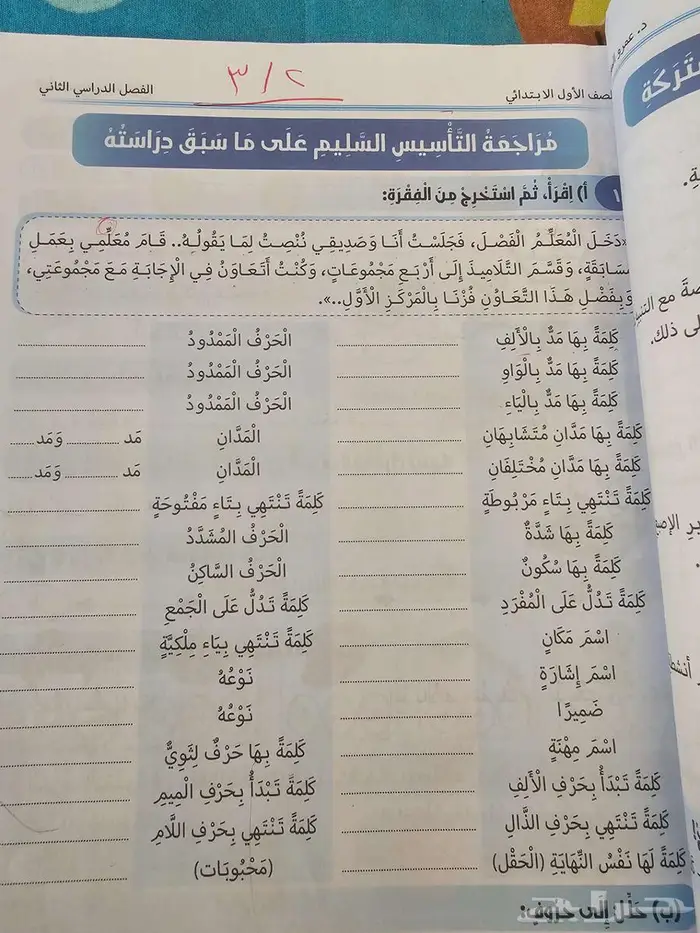 الصف الأول الابتدائي
٣/٢
الفصل الدراسي الثاني
مُرَاجَعَةُ التَّأْسِيسِ السَّلِيمِ عَلَى مَا سَبَقَ دِرَاسَتُهُ
١ أ) اِقْرَأْ، ثُمَّ اسْتَخْرِجْ مِنَ الْفِقْرَةِ:
«دَخَلَ الْمُعَلِّمُ الْفَصْلَ، فَجَلَسْتُ أَنَا وَصَدِيقِي نُنْصِتُ لِمَا يَقُولُهُ.. قَامَ مُعَلِّمِي بِعَمَلِ
مُسَابَقَةٍ، وَقَسَّمَ التَّلَامِيذَ إِلَى أَرْبَعِ مَجْمُوعَاتٍ، وَكُنْتُ أَتَعَاوَنُ فِي الْإِجَابَةِ مَعَ مَجْمُوعَتِي،
وَبِفَضْلِ هَذَا التَّعَاوُنِ فُزْنَا بِالْمَرْكَزِ الْأَوَّلِ..».
كَلِمَةً بِهَا مَدٌّ بِالْأَلِفِ ........ الْحَرْفُ الْمَمْدُودُ ........
كَلِمَةً بِهَا مَدٌّ بِالْوَاوِ ........ الْحَرْفُ الْمَمْدُودُ ........
كَلِمَةً بِهَا مَدٌّ بِالْيَاءِ ........ الْحَرْفُ الْمَمْدُودُ ........
كَلِمَةً بِهَا مَدَّانِ مُتَشَابِهَانِ ........ الْمَدَّانِ مَد ........ وَمَد ........
كَلِمَةً بِهَا مَدَّانِ مُخْتَلِفَانِ ........ الْمَدَّانِ مَد ........ وَمَد ........
كَلِمَةً تَنْتَهِي بِتَاءٍ مَرْبُوطَةٍ ........ كَلِمَةً تَنْتَهِي بِتَاءٍ مَفْتُوحَةٍ ........
كَلِمَةً بِهَا شَدَّةٌ ........ الْحَرْفُ الْمُشَدَّدُ ........
كَلِمَةً بِهَا سُكُونٌ ........ الْحَرْفُ السَّاكِنُ ........
كَلِمَةً تَدُلُّ عَلَى الْمُفْرَدِ ........ كَلِمَةً تَدُلُّ عَلَى الْجَمْعِ ........
اسْمَ مَكَانٍ ........ كَلِمَةً تَنْتَهِي بِيَاءِ مِلْكِيَّةٍ ........
اسْمَ إِشَارَةٍ ........ نَوْعُهُ ........
ضَمِيرًا ........ نَوْعُهُ ........
اسْمَ مِهْنَةٍ ........ كَلِمَةً بِهَا حَرْفٌ لِثَوِيٌّ ........
كَلِمَةً تَبْدَأُ بِحَرْفِ الْأَلِفِ ........ كَلِمَةً تَبْدَأُ بِحَرْفِ الْمِيمِ ........
كَلِمَةً تَنْتَهِي بِحَرْفِ الذَّالِ ........ كَلِمَةً تَنْتَهِي بِحَرْفِ اللَّامِ ........
كَلِمَةً لَهَا نَفْسُ النِّهَايَةِ (الْحَقْل) ........ (مَحْبُوبَات) ........
(ب) حَلِّلْ إِلَى حُرُوفٍ:
د. عمرو
لى ذلك.